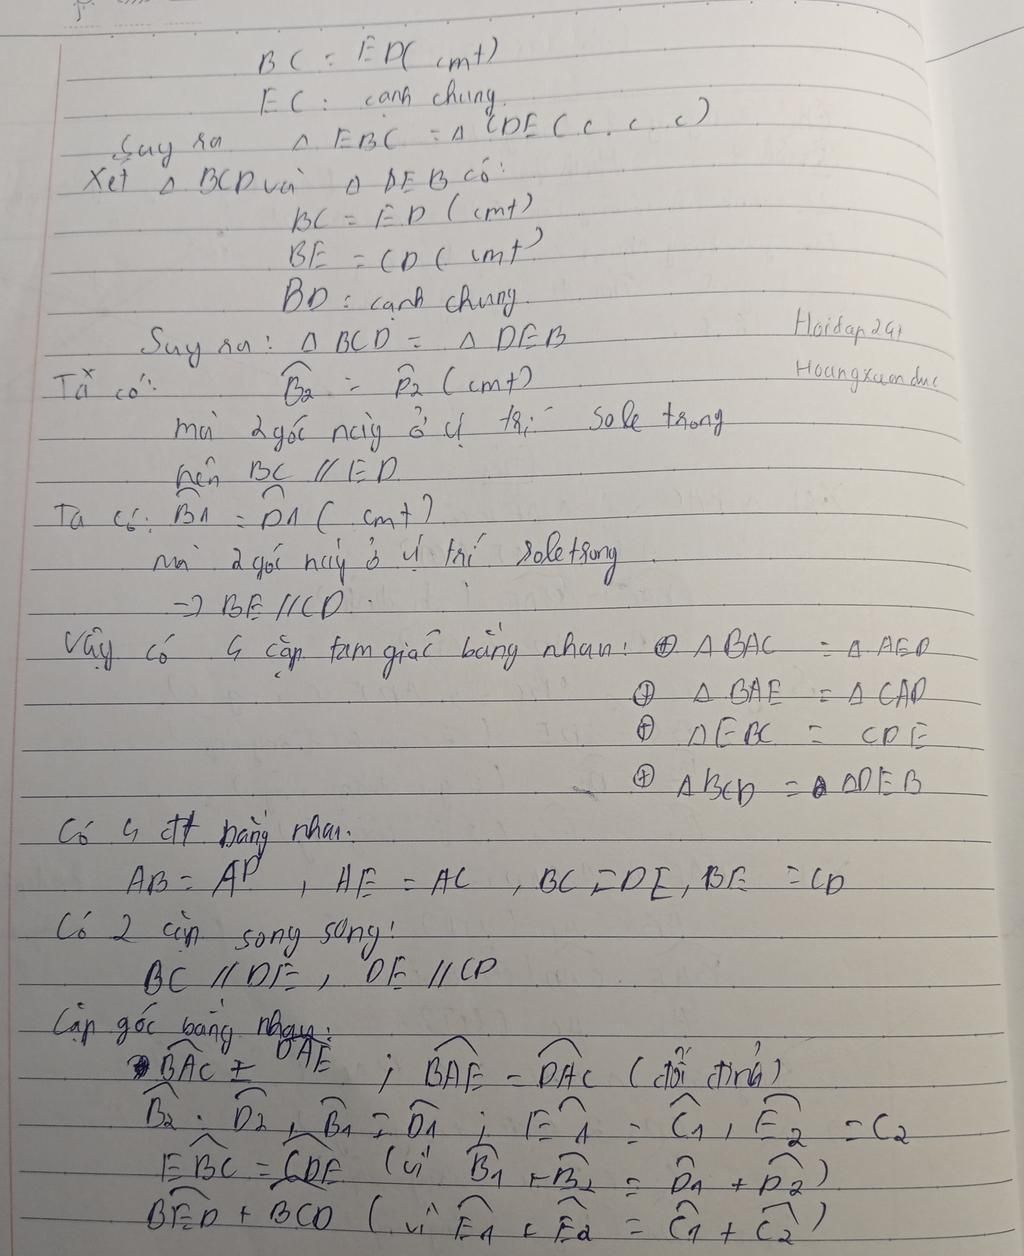 BC = ED ( cmt)
EC : cạnh chung
Suy ra Δ EBC = Δ CDE ( c. c. c )
Xét Δ BCD và Δ DEB có:
BC = ED ( cmt)
BE = CD ( cmt )
BD : cạnh chung
Suy ra: Δ BCD = Δ DEB
Hoidap247
Hoangxuanduc
Ta có: B̂2 = D̂2 ( cmt)
mà 2 góc này ở vị trí sole trong
nên BC // ED
Ta có: B̂1 = D̂1 ( cmt)
mà 2 góc này ở vị trí sole trong
=> BE // CD .
Vậy có 4 cặp tam giác bằng nhau: ⊕ Δ BAC = Δ AED
⊕ Δ BAE = Δ CAD
⊕ Δ EBC = CDE
⊕ Δ BCD = Δ DEB
Có 4 đt bằng nhau.
AB = AD , AE = AC , BC = DE , BE = CD
Có 2 cặp song song!
BC // DE , DE // CD
Cặp góc bằng nhau:
BAC = DAE ; BAE = DAC ( đối đỉnh)
B̂2 = D̂2 , B̂1 = D̂1 ; Ê1 = Ĉ1 , Ê2 = C2
EBC = CDE ( vì B̂1 + B̂2 = D̂1 + D̂2 )
BED + BCD ( vì Ê1 + Ê2 = Ĉ1 + Ĉ2 )